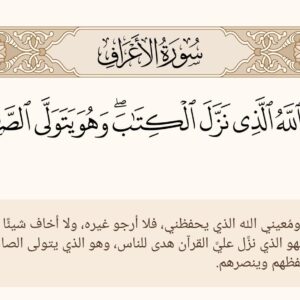 سُورَةُ الأَعْرَافِ
ٱللَّهُ ٱلَّذِى نَزَّلَ ٱلْكِتَٰبَۖ وَهُوَ يَتَوَلَّى
ومُعيني الله الذي يحفظني، فلا أرجو غيره، ولا أخاف شيئًا
هو الذي نزَّل عليَّ القرآن هدى للناس، وهو الذي يتولى
وينصرهم.